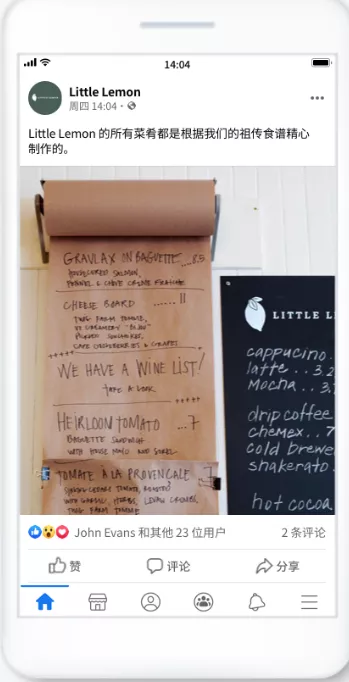 14:04
Little Lemon
周四 14:04 ·
Little Lemon 的所有菜肴都是根据我们的祖传食谱精心
制作的。
GRAVLAX ON BAGUETTE ...8.5
HOUSECURED SALMON,
FENNEL & CHIVE CREME FRAICHE
CHEESE BOARD ...... 11
TWIG FARM TOMME,
PICKLED
WE HAVE A WINE LIST!
TAKE A LOOK
HEIRLOOM TOMATO ...7
BAGUETTE SANDWICH
WITH HOUSE MAYO AND SORREL
TOMATE A LA PROVENCALE ...7
TWIG FARM TOMME
LITTLE L
cappucino.
latte ..3.2
Mocha ..3.
drip coffee
chemex..7
cold brewe
shakerato.
hot cocoa
John Evans 和其他 23 位用户
2 条评论
赞
评论
分享